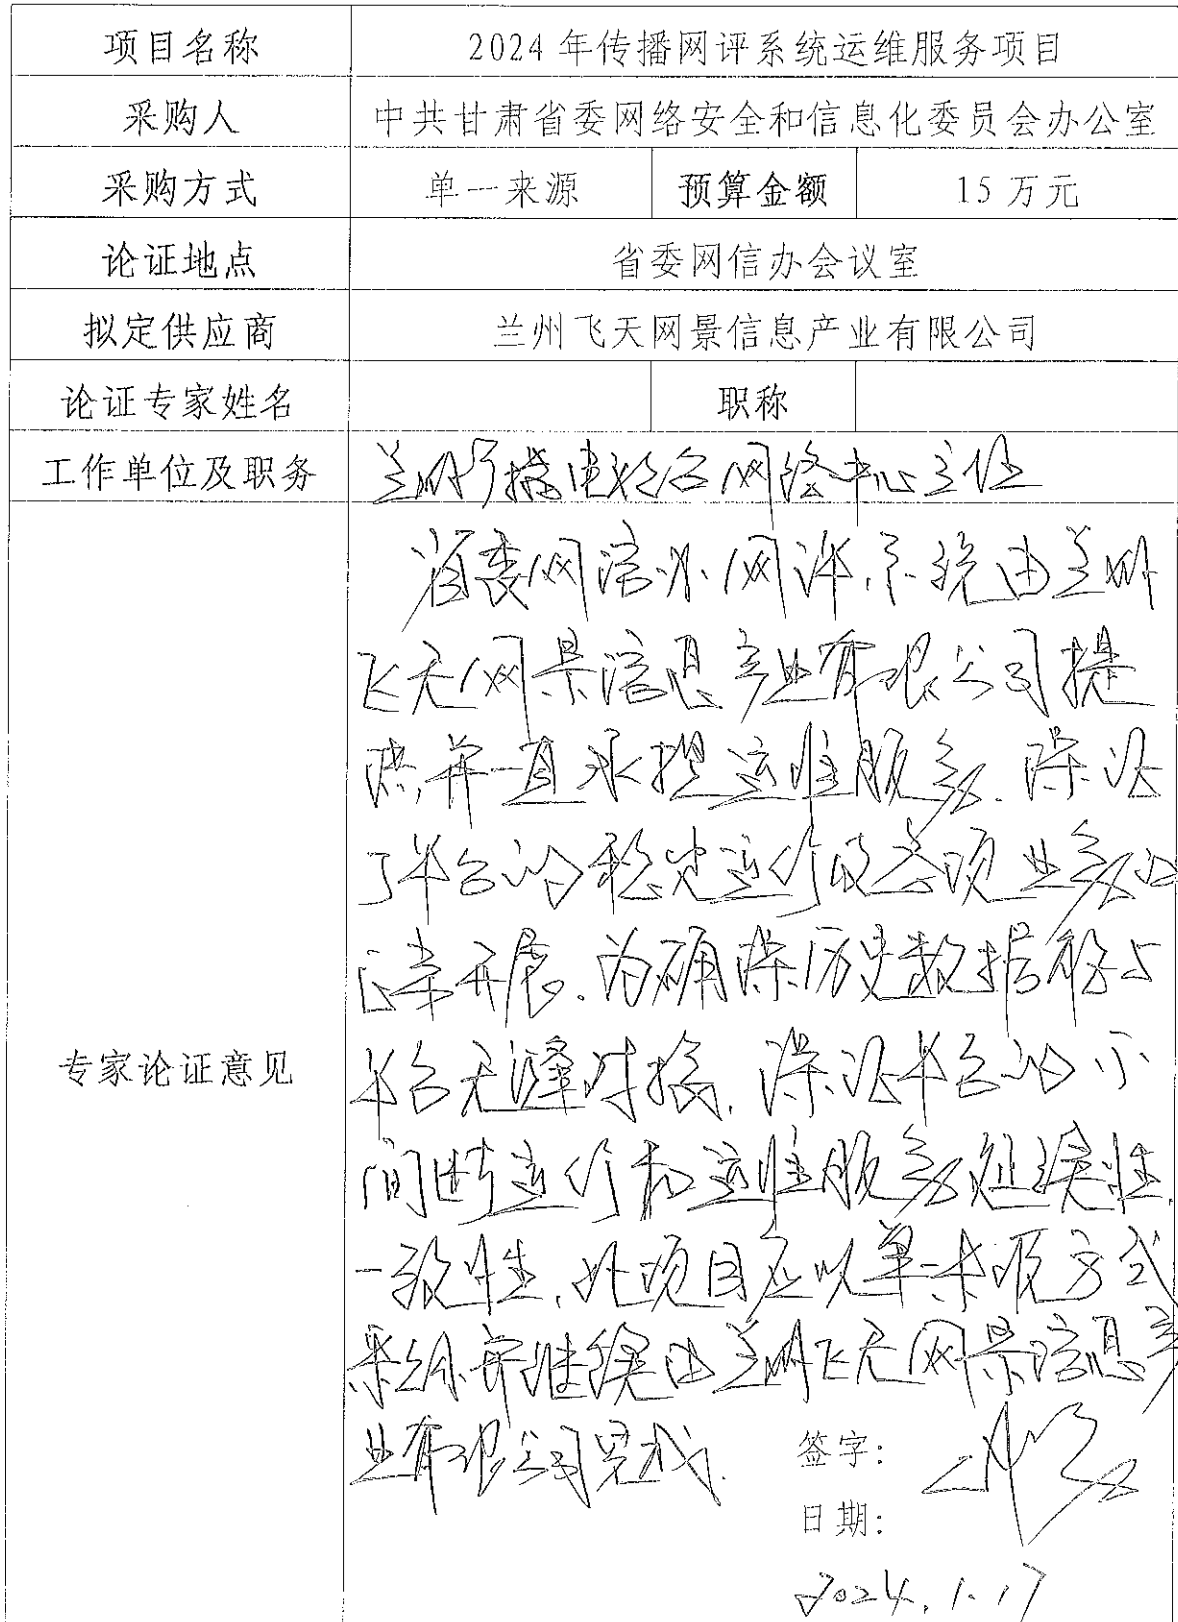 项目名称 2024年传播网评系统运维服务项目
采购人 中共甘肃省委网络安全和信息化委员会办公室
采购方式 单一来源 预算金额 15万元
论证地点 省委网信办会议室
拟定供应商 兰州飞天网景信息产业有限公司
论证专家姓名 职称
工作单位及职务 兰州广播电视台网络中心主任
省委网信办网评系统由兰州
飞天网景信息产业有限公司提
供,并一直承担运维服务.保证
了平台的稳定运行及各项业务的
正常开展.为确保历史数据 与
专家论证意见
平台无缝对接,保证平台的不
间断运行和运维服务延续性.
一致性,此项目应以单一来源方式
采购并继续由兰州飞天网景信息产
业有限公司完成.
签字:
日期:
2024.1.17